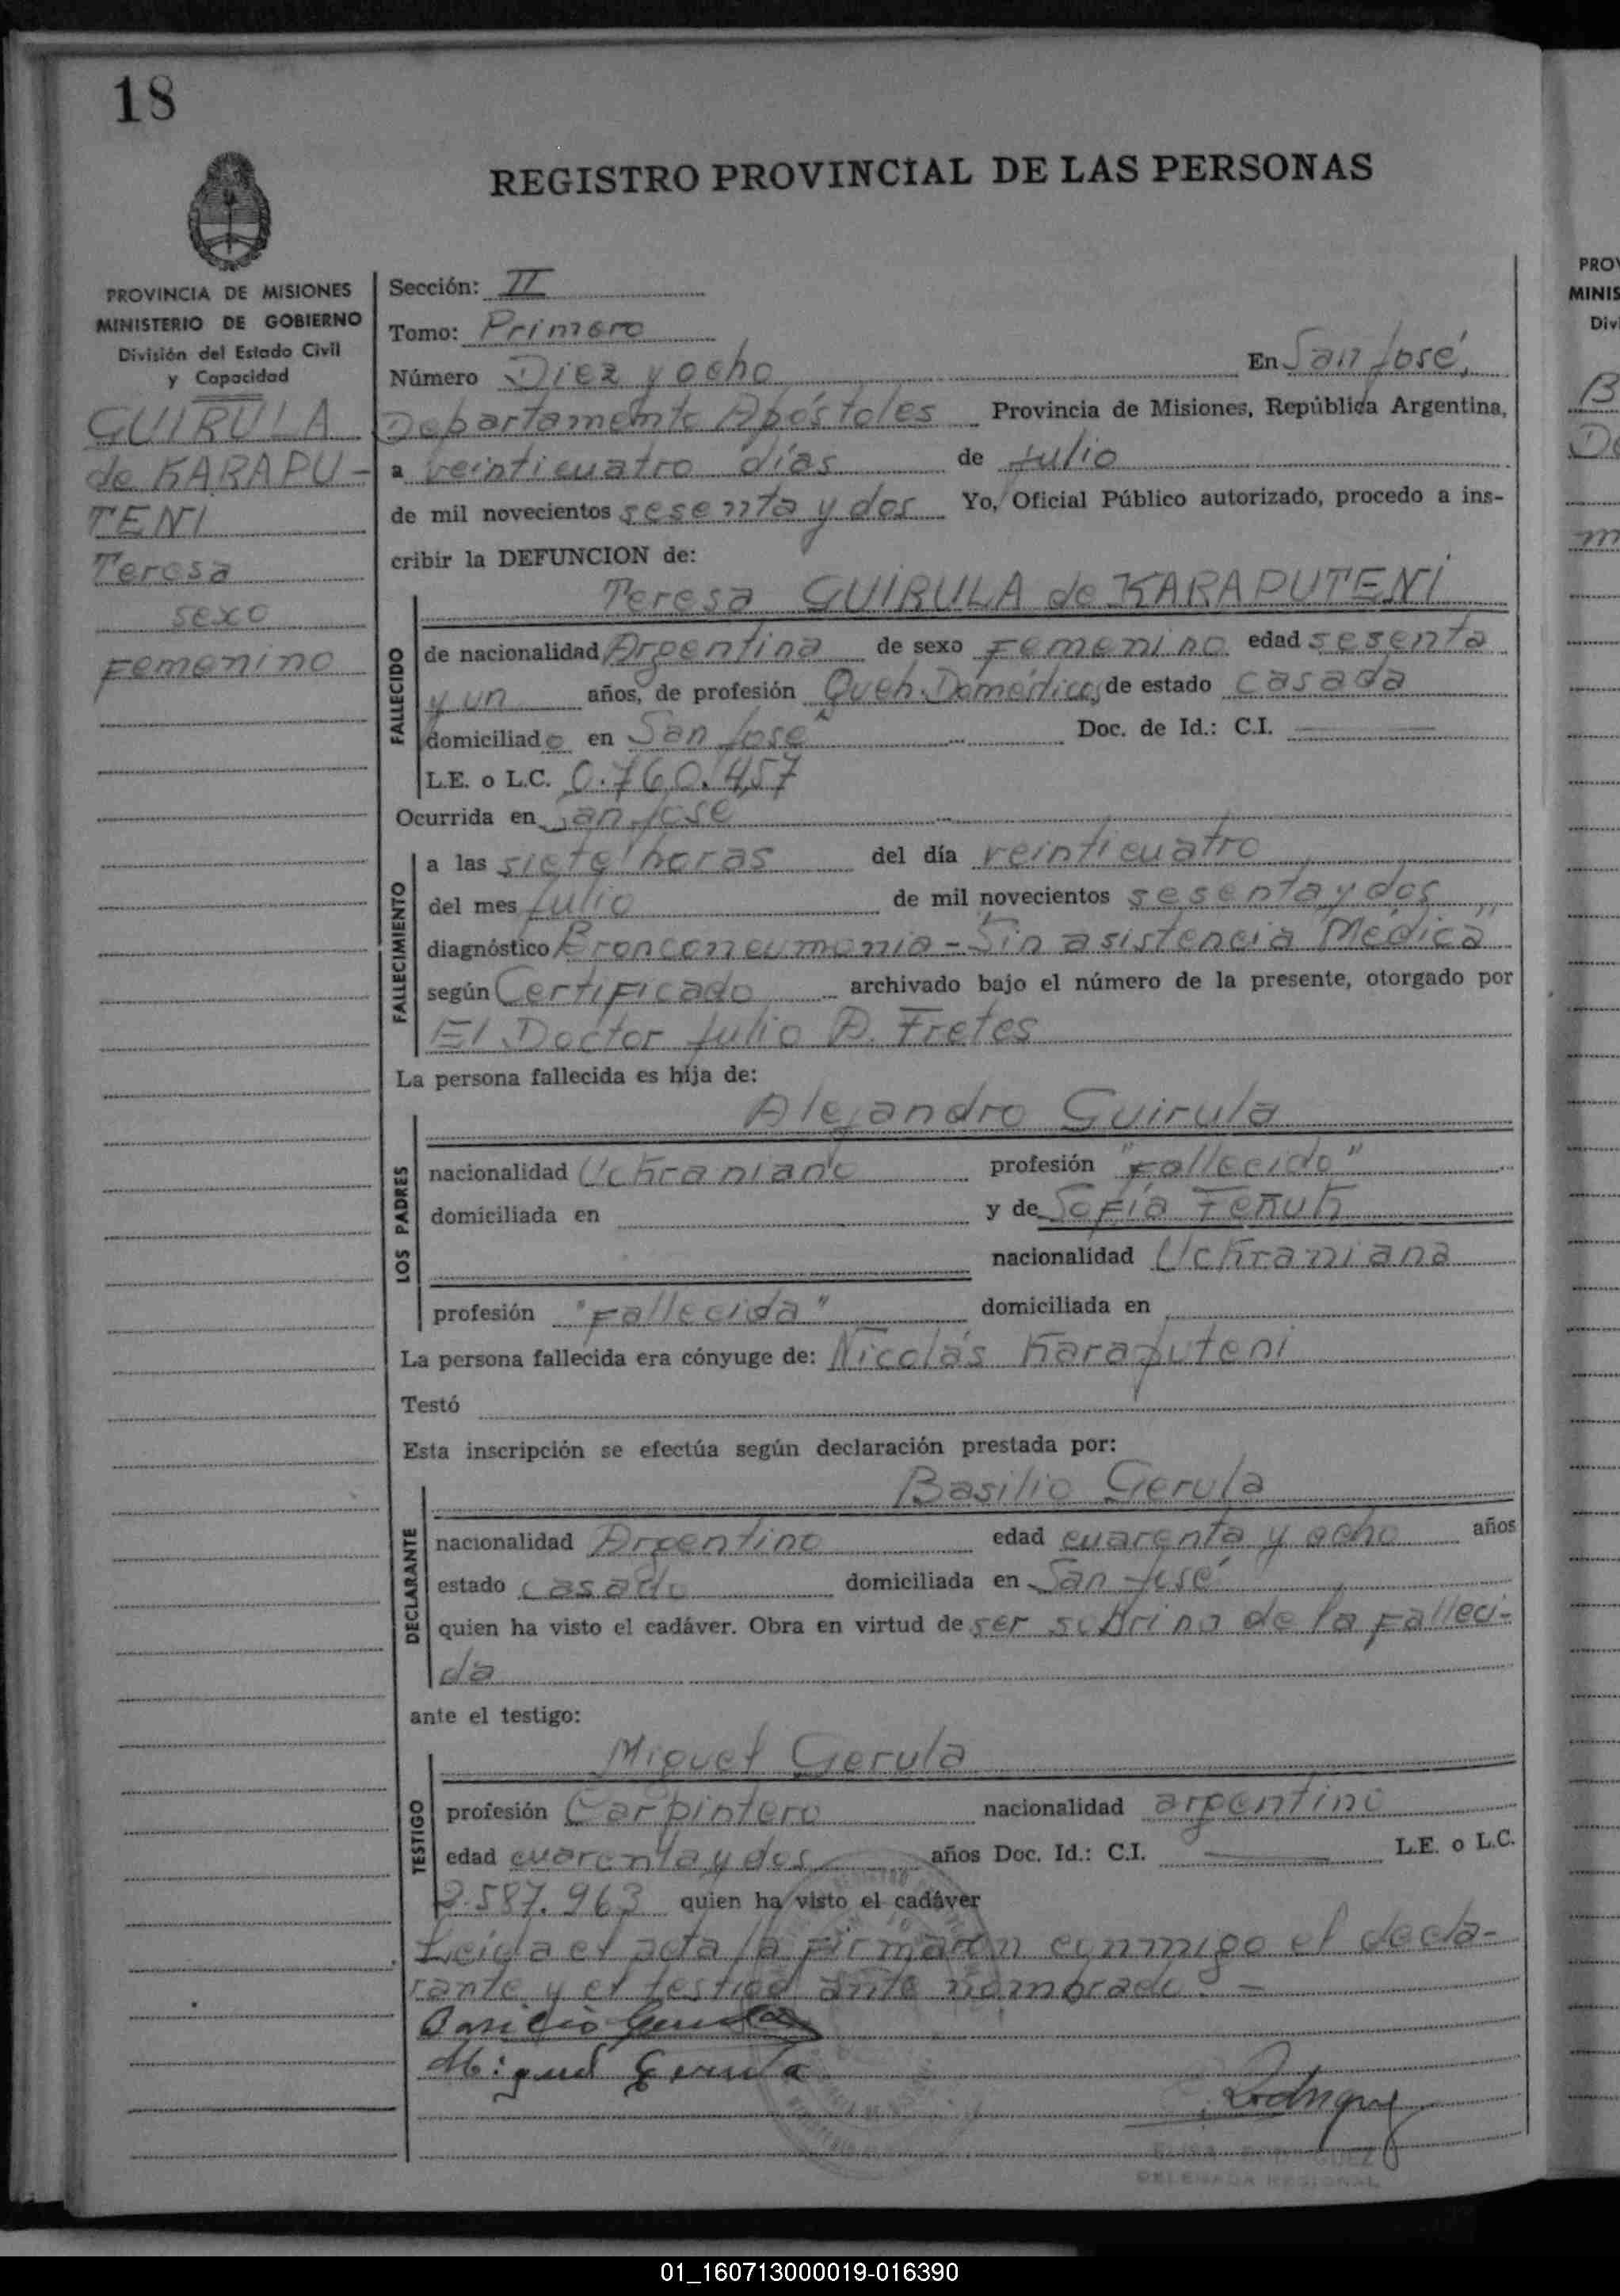 18
REGISTRO PROVINCIAL DE LAS PERSONAS
PROVINCIA DE MISIONES
MINISTERIO DE GOBIERNO
División del Estado Civil
y Capacidad
GUIRULA
de KARAPU-
TENI
Teresa
sexo
Femenino
Sección: II
Tomo: Primero
Número Diez y ocho En San José,
Departamento Apóstoles Provincia de Misiones, República Argentina,
a veinticuatro días de Julio
de mil novecientos sesenta y dos Yo, Oficial Público autorizado, procedo a ins-
cribir la DEFUNCION de:
Teresa GUIRULA de KARAPUTENI
FALLECIDO
de nacionalidad Argentina de sexo Femenino edad sesenta
y un años, de profesión Queh. Domésticos, de estado casada
domiciliado en San José Doc. de Id.: C.I.
L.E. o L.C. 0.760.457
Ocurrida en San José
FALLECIMIENTO
a las siete horas del día veinticuatro
del mes Julio de mil novecientos sesenta y dos
diagnóstico Bronconeumonia - "Sin asistencia Médica"
según Certificado archivado bajo el número de la presente, otorgado por
El Doctor Julio A. Fretes
La persona fallecida es hija de:
Alejandro Guirula
LOS PADRES
nacionalidad Uckraniano profesión "Fallecido"
domiciliada en y de Sofía
nacionalidad Uckraniana
profesión "Fallecida" domiciliada en
La persona fallecida era cónyuge de: Nicolás Karaputeni
Testó
Esta inscripción se efectúa según declaración prestada por:
Basilio Gerula
DECLARANTE
nacionalidad Argentino edad cuarenta y ocho años
estado casado domiciliada en San José
quien ha visto el cadáver. Obra en virtud de ser sobrino de la Falleci-
da
ante el testigo:
Miguel Gerula
TESTIGO
profesión Carpintero nacionalidad argentino
edad cuarenta y dos años Doc. Id.: C.I. L.E. o L.C.
2.587.963 quien ha visto el cadáver
Leida el acta la Firmaron conmigo el decla-
rante y el testigo ante nombrado. -
Basilio Gerula
Miguel Gerula
DELEGADA REGIONAL
PROV
MINIS
Divi
B
De
m
01_160713000019-016390